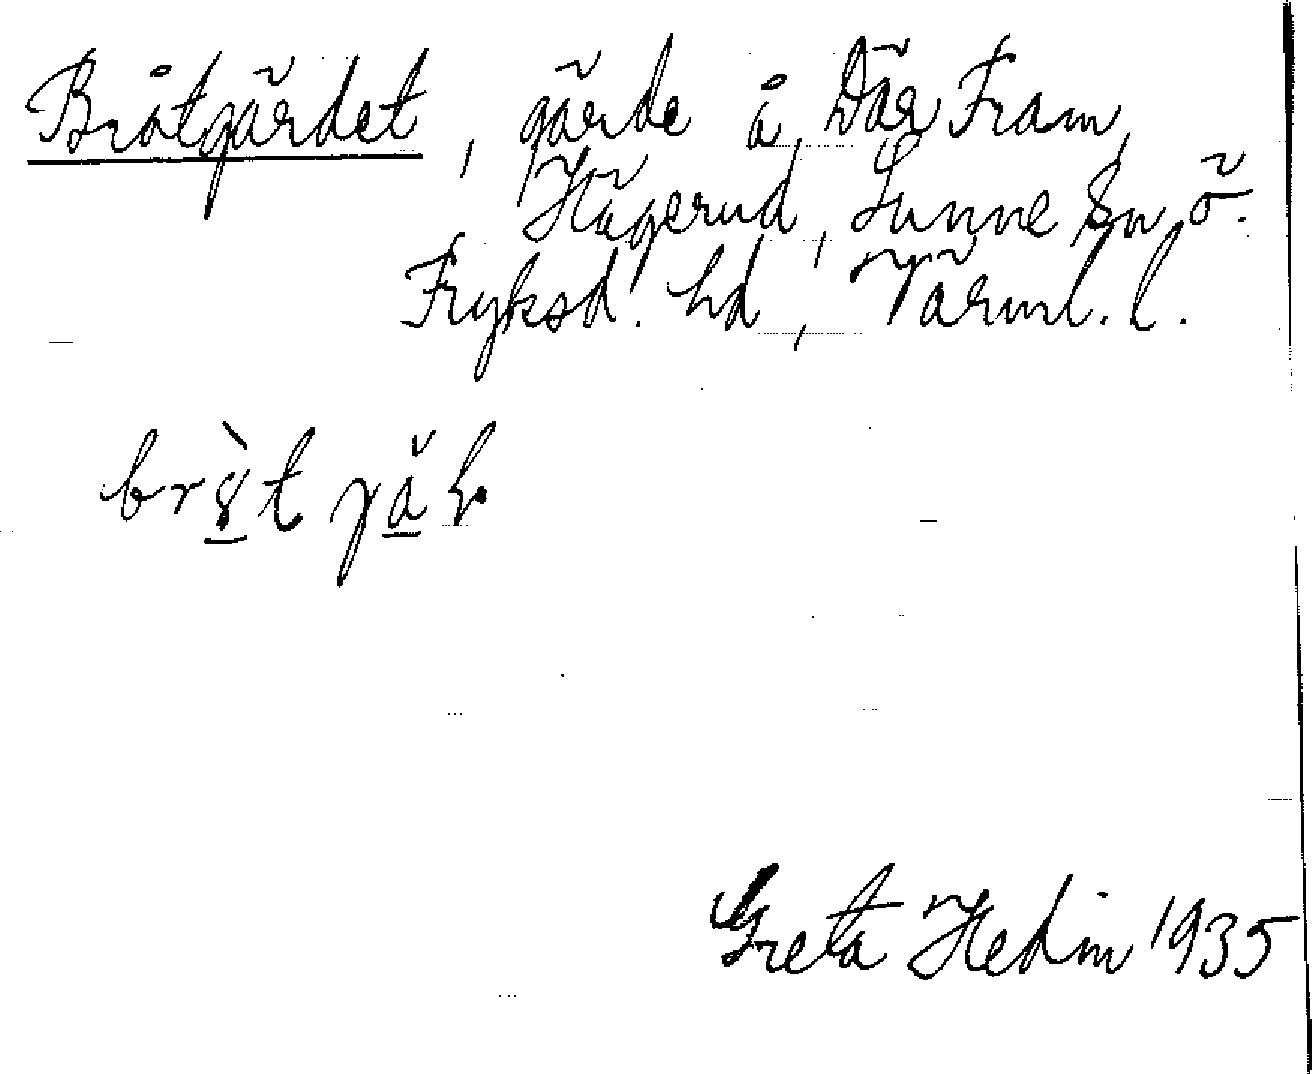 Bråtgärdet, gärde å Där Fram,
Hägerud, Sunne sn, ö.
Fryksd. hd, Värml. l.
Greta Hedin 1935